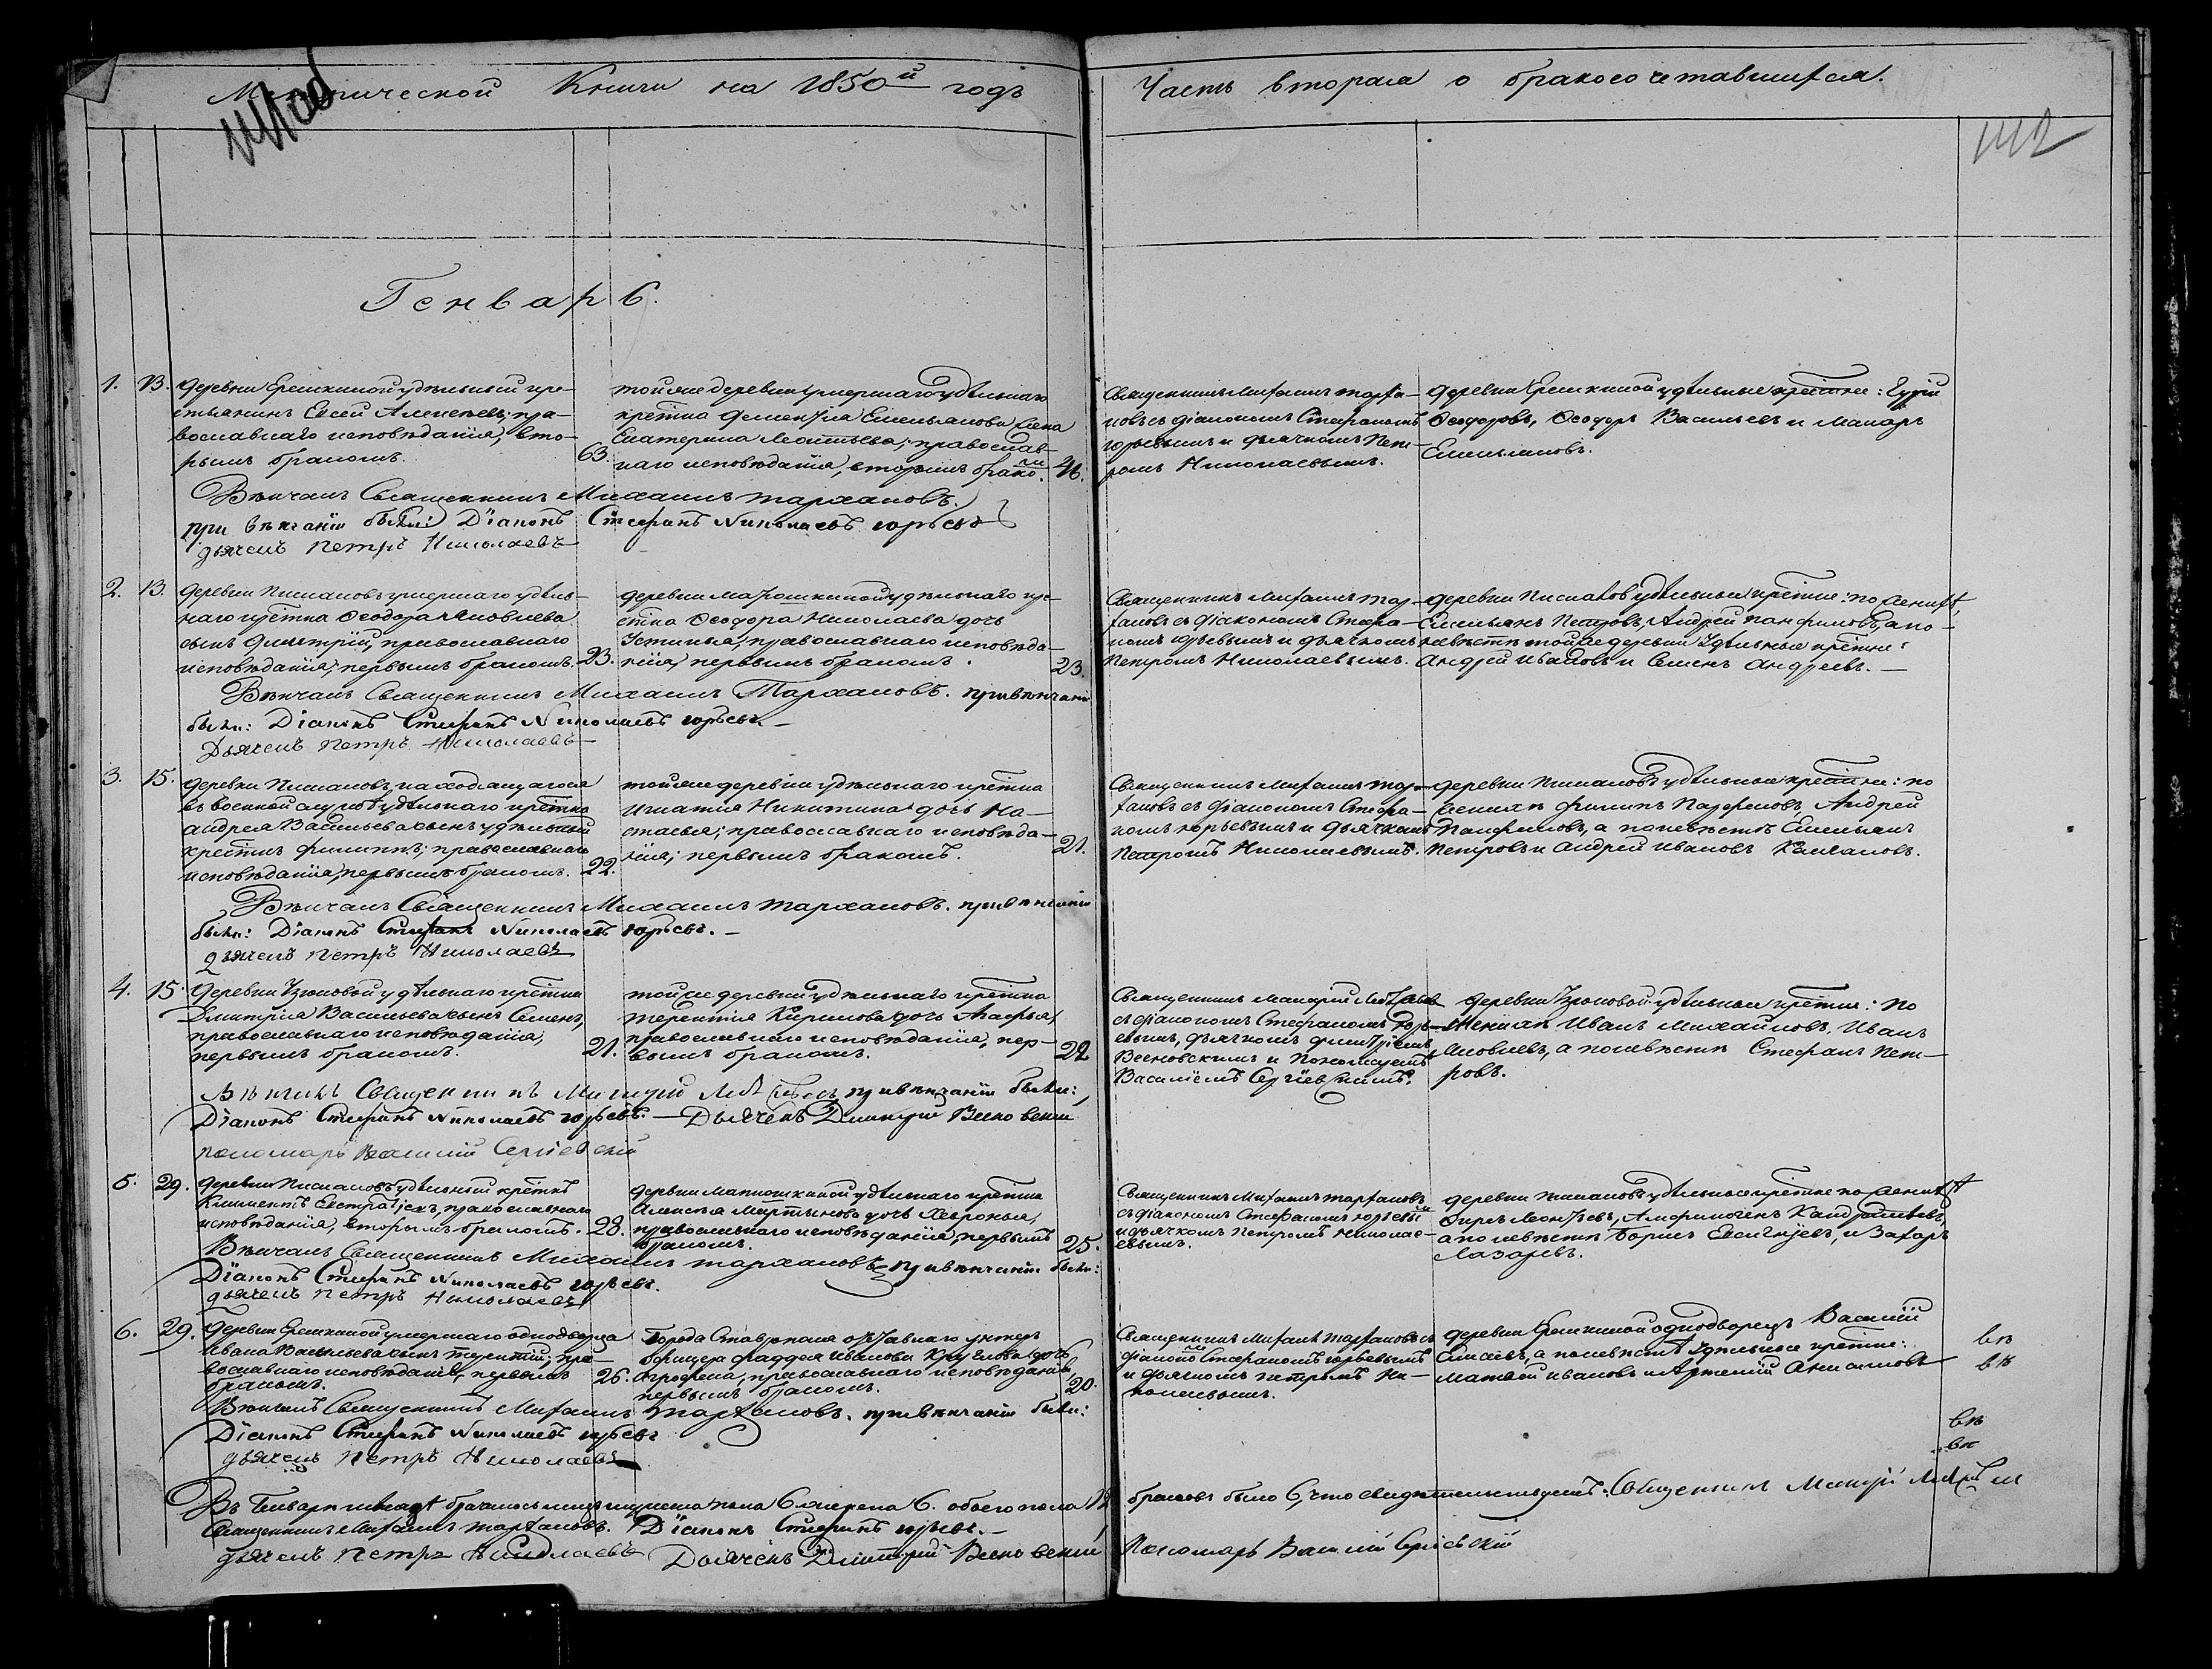 Метрической Книги на 1850й годъ
Часть вторая о бракосочетавшихся.
1112
Генварь
1. 13. деревни Ерешкиной удѣльный кре-
стьянинъ Сысей Алексѣевъ; пра-
вославнаго исповѣданія, вто-
рымъ бракомъ. 63.
тойже деревни умершаго удѣльнаго
крестна Дементія Емельянова жена
Екатерина Леонтьева; православ-
наго исповѣданія, вторымъ бракомъ.
Священникъ Михаилъ Тарха-
новъ съ діакономъ Стефаномъ
Юрьевымъ и дьячкомъ Пет-
ромъ Николаевымъ.
деревни Ерешкиной удѣльные крестне: Гурій
Ѳеодоровъ, Ѳеодоръ Васильевъ и Макаръ
Емельяновъ.
Вѣнчалъ Священникъ Михаилъ Тархановъ.
при вѣнчаніи были: Діаконъ Стефанъ Николаевъ Юрьевъ
дьячекъ Петръ Николаевъ
2. 13. деревни умершаго удѣль-
наго крестна Ѳеодора Яковлева
сынъ Димитрій, православнаго
исповѣданія, первымъ бракомъ. 23.
деревни Матюшкиной удѣльнаго кре-
стна Ѳеодора Николаева дочь
Устинья, православнаго исповѣда-
нія, первымъ бракомъ. 23.
Священникъ Михаилъ Тар-
хановъ съ діакономъ Стефа-
номъ Юрьевымъ и дьячкомъ
Петромъ Николаевымъ.
деревни удѣльные крестне: по женихѣ,
Емельянъ Петровъ, Андрей Панфиловъ, а по
невѣстѣ тойже деревни удѣльные крестне:
Андрей Ивановъ и Семенъ Андреевъ.
Вѣнчалъ Священникъ Михаилъ Тархановъ. при вѣнчаніи
были: Діаконъ Стефанъ Николаевъ Юрьевъ.
Дьячекъ Петръ Николаевъ
3. 15. деревни находящагося
въ военной службѣ удѣльнаго крестна
Андрея Васильева сынъ удѣльный
крестнъ Филиппъ; православнаго
исповѣданія, первымъ бракомъ. 22.
тойже деревни удѣльнаго крестна
Игнатія Никитина дочь На-
стасья; православнаго исповѣда-
нія; первымъ бракомъ. 21.
Священникъ Михаилъ Тар-
хановъ съ діакономъ Стефа-
номъ Юрьевымъ и дьячкомъ
Петромъ Николаевымъ.
деревни удѣльные крестне: по
женихѣ Филипъ Парфеновъ, Андрей
Панфиловъ, а по невѣстѣ Емельянъ
Петровъ и Андрей Ивановъ
Вѣнчалъ Священникъ Михаилъ Тархановъ. при вѣнчаніи
были: Діаконъ Стефанъ Николаевъ Юрьевъ.
дьячекъ Петръ Николаевъ
4. 15. деревни Узюковой удѣльнаго крестна
Димитрія Васильева сынъ Семенъ,
православнаго исповѣданія,
первымъ бракомъ. 21.
тойже деревни удѣльнаго крестна
Терентія Кирилова дочь Марья,
православнаго исповѣданія, пер-
вымъ бракомъ. 22
Священникъ
съ діакономъ Стефаномъ Юрь-
евымъ, дьячкомъ Димитріемъ
и Пономаремъ
Василіемъ Сергіевскимъ.
деревни Узюковой удѣльные крестне: по
женихѣ Иванъ Михайловъ, Иванъ
Яковлевъ, а по невѣстѣ Стефанъ Пет-
ровъ.
Вѣнчалъ Священникъ при вѣнчаніи были:
Діаконъ Стефанъ Николаевъ Юрьевъ. Дьячекъ Димитрій
пономарь Василій Сергіевскій
5. 29. деревни удѣльный крестнъ
Климентъ Евстратіевъ, православнаго
исповѣданія, вторымъ бракомъ. 28.
деревни Матюшкиной удѣльнаго крестна
Алексѣя Мартынова дочь Хевронья,
православнаго исповѣданія, первымъ
бракомъ. 25.
Священникъ Михаилъ Тархановъ
съ діакономъ Стефаномъ Юрьевымъ
и дьячкомъ Петромъ Николае-
евымъ.
деревни удѣльные крестне по женихѣ
Леонтьевъ,
а по невѣстѣ Борисъ и Захаръ
Лазаревъ.
Вѣнчалъ Священникъ Михаилъ Тархановъ при вѣнчаніи были:
Діаконъ Стефанъ Николаевъ Юрьевъ.
дьячекъ Петръ Николаевъ
6. 29. деревни Ерешкиной умершаго однодворца
Ивана Васильева сынъ Терентій; пра-
вославнаго исповѣданія, первымъ
бракомъ. 26.
Города Ставрополя отставнаго унтеръ
офицера Фаддея Иванова Круглова дочь
Агрофена, православнаго исповѣданія,
первымъ бракомъ. 20.
Священникъ Михаилъ Тархановъ съ
діакономъ Стефаномъ Юрьевымъ
и дьячкомъ Петромъ Ни-
колаевымъ.
деревни Ерешкиной однодворецъ Василій
а по невѣстѣ удѣльные крестне:
Матвей Ивановъ и Арженій
вѣ
вѣ
Вѣнчалъ Священникъ Михаилъ Тархановъ. при вѣнчаніи были:
Діаконъ Стефанъ Николаевъ Юрьевъ
дьячекъ Петръ Николаевъ
вѣ
вѣ
Въ Генварѣ бракомъ мужеска пола 6 женска 6. обоего пола 12
браковъ было 6, что свидѣтельствуемъ: Священникъ
Священникъ Михаилъ Тархановъ. Діаконъ Стефанъ Юрьевъ.
дьячекъ Петръ Николаевъ Дьячекъ Димитрій Пономарь Василій Сергіевскій